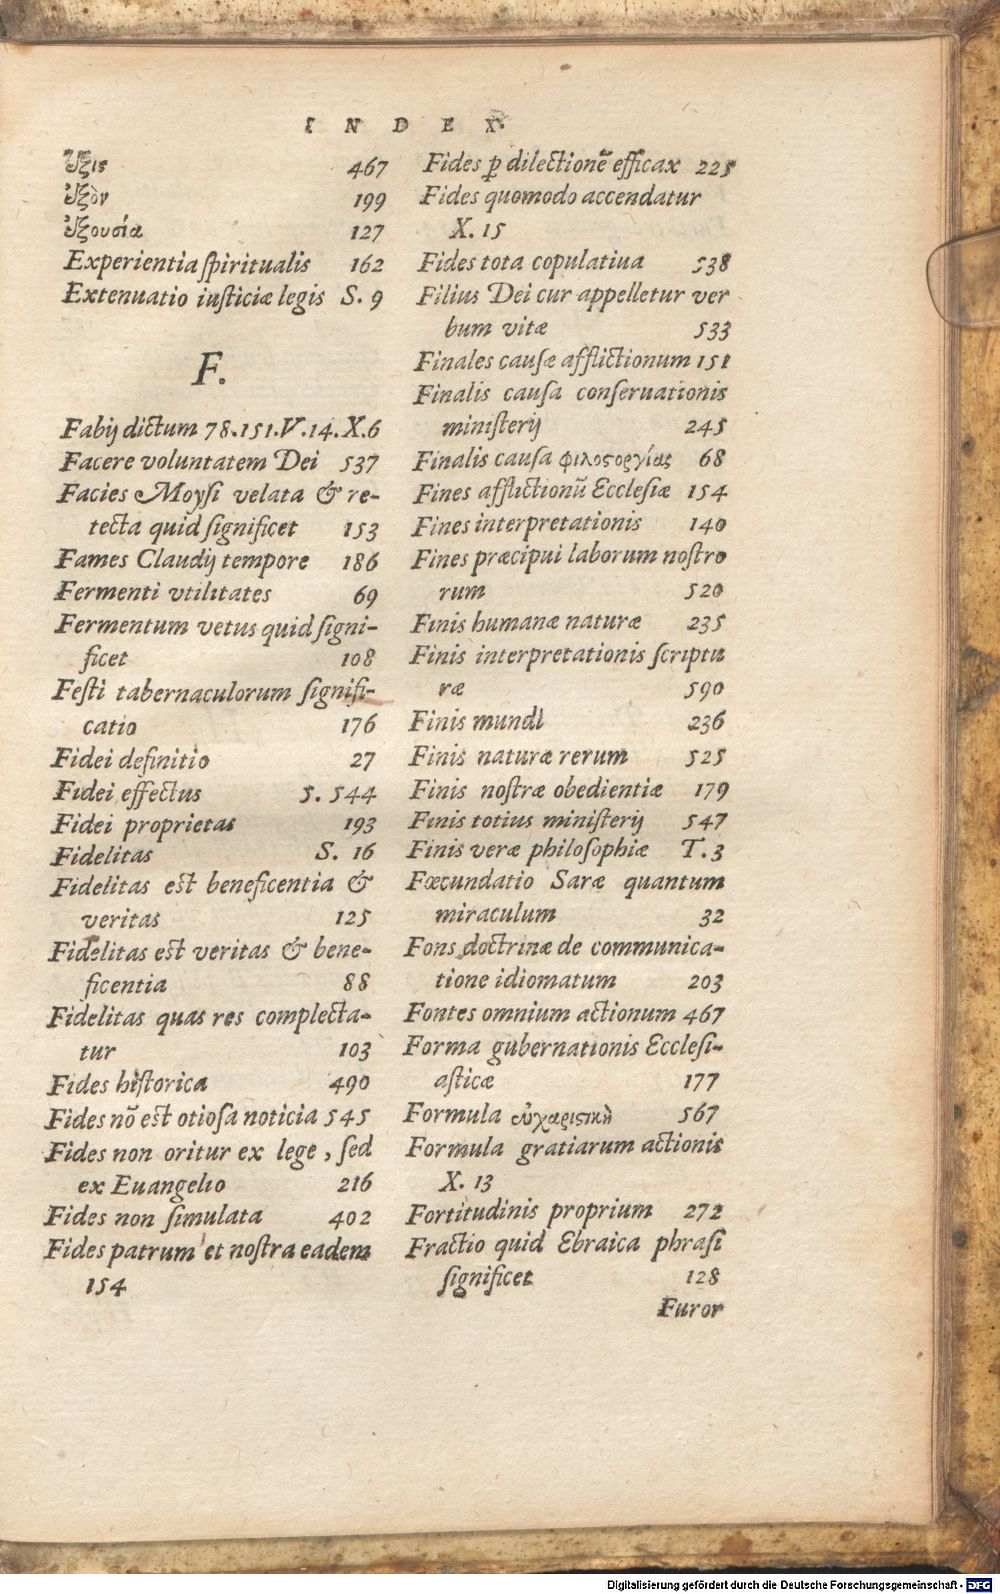 INDEX
ἕξις 467
ἐξὸν 199
ἐξουσία 127
Experientia spiritualis 162
Extenuatio iusticiæ legis S. 9
F.
Fabij dictum 78.151.V.14.X.6
Facere voluntatem Dei 537
Facies Moysi velata & re-
tecta quid significet 153
Fames Claudij tempore 186
Fermenti vtilitates 69
Fermentum vetus quid signi-
ficet 108
Festi tabernaculorum signifi-
catio 176
Fidei definitio 27
Fidei effectus 5. 544
Fidei proprietas 193
Fidelitas S. 16
Fidelitas est beneficentia &
veritas 125
Fidelitas est veritas & bene-
ficentia 88
Fidelitas quas res complecta-
tur 103
Fides historica 490
Fides nõ est otiosa noticia 545
Fides non oritur ex lege, sed
ex Euangelio 216
Fides non simulata 402
Fides patrum et nostra eadem
154
Fides ꝑ dilectionẽ efficax 225
Fides quomodo accendatur
X. 15
Fides tota copulatiua 538
Filius Dei cur appelletur ver
bum vitæ 533
Finales causæ afflictionum 151
Finalis causa conseruationis
ministerij 245
Finalis causa φιλοϛοργίας 68
Fines afflictionũ Ecclesiæ 154
Fines interpretationis 140
Fines præcipui laborum nostro
rum 520
Finis humanæ naturæ 235
Finis interpretationis scriptu
ræ 590
Finis mundi 236
Finis naturæ rerum 525
Finis nostræ obedientiæ 179
Finis totius ministerij 547
Finis veræ philosophiæ T. 3
Fœcundatio Saræ quantum
miraculum 32
Fons doctrinæ de communica-
tione idiomatum 203
Fontes omnium actionum 467
Forma gubernationis Ecclesi-
asticæ 177
Formula εὐχαριϛικὴ 567
Formula gratiarum actionis
X. 13
Fortitudinis proprium 272
Fractio quid Ebraica phrasi
significet 128
Furor
Digitalisierung gefördert durch die Deutsche Forschungsgemeinschaft - DFG